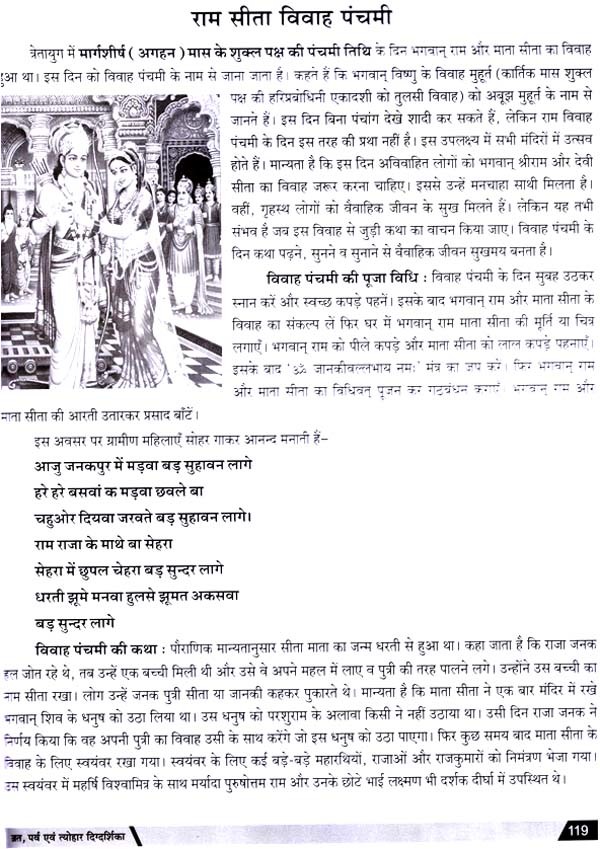 राम सीता विवाह पंचमी
त्रेतायुग में मार्गशीर्ष ( अगहन ) मास के शुक्ल पक्ष की पंचमी तिथि के दिन भगवान् राम और माता सीता का विवाह
हुआ था। इस दिन को विवाह पंचमी के नाम से जाना जाता है। कहते हैं कि भगवान् विष्णु के विवाह मुहूर्त (कार्तिक मास शुक्ल
पक्ष की हरिप्रबोधिनी एकादशी को तुलसी विवाह) को अबूझ मुहूर्त के नाम से
जानते हैं। इस दिन बिना पंचांग देखे शादी कर सकते हैं, लेकिन राम विवाह
पंचमी के दिन इस तरह की प्रथा नहीं है। इस उपलक्ष्य में सभी मंदिरों में उत्सव
होते हैं। मान्यता है कि इस दिन अविवाहित लोगों को भगवान् श्रीराम और देवी
सीता का विवाह जरूर करना चाहिए। इससे उन्हें मनचाहा साथी मिलता है।
वहीं, गृहस्थ लोगों को वैवाहिक जीवन के सुख मिलते हैं। लेकिन यह तभी
संभव है जब इस विवाह से जुड़ी कथा का वाचन किया जाए। विवाह पंचमी के
दिन कथा पढ़ने, सुनने व सुनाने से वैवाहिक जीवन सुखमय बनता है।
विवाह पंचमी की पूजा विधि : विवाह पंचमी के दिन सुबह उठकर
स्नान करें और स्वच्छ कपड़े पहनें। इसके बाद भगवान् राम और माता सीता के
विवाह का संकल्प लें फिर घर में भगवान् राम माता सीता की मूर्ति या चित्र
लगाएँ। भगवान् राम को पीले कपड़े और माता सीता को लाल कपड़े पहनाएँ।
इसके बाद 'ॐ जानकीवल्लभाय नमः' मंत्र का जप करें। फिर भगवान् राम
और माता सीता का विधिवत् पूजन कर गठबंधन कराएँ। भगवान् राम और
माता सीता की आरती उतारकर प्रसाद बाँटें।
इस अवसर पर ग्रामीण महिलाएँ सोहर गाकर आनन्द मनाती हैं–
आजु जनकपुर में मड़वा बड़ सुहावन लागे
हरे हरे बसवां क मड़वा छवले बा
चहुओर दियवा जरवते बड़ सुहावन लागे।
राम राजा के माथे बा सेहरा
सेहरा में छुपल चेहरा बड़ सुन्दर लागे
धरती झूमे मनवा हुलसे झूमत अकसवा
बड़ सुन्दर लागे
विवाह पंचमी की कथा : पौराणिक मान्यतानुसार सीता माता का जन्म धरती से हुआ था। कहा जाता है कि राजा जनक
हल जोत रहे थे, तब उन्हें एक बच्ची मिली थी और उसे वे अपने महल में लाए व पुत्री की तरह पालने लगे। उन्होंने उस बच्ची का
नाम सीता रखा। लोग उन्हें जनक पुत्री सीता या जानकी कहकर पुकारते थे। मान्यता है कि माता सीता ने एक बार मंदिर में रखे
भगवान् शिव के धनुष को उठा लिया था। उस धनुष को परशुराम के अलावा किसी ने नहीं उठाया था। उसी दिन राजा जनक ने
निर्णय किया कि वह अपनी पुत्री का विवाह उसी के साथ करेंगे जो इस धनुष को उठा पाएगा। फिर कुछ समय बाद माता सीता के
विवाह के लिए स्वयंवर रखा गया। स्वयंवर के लिए कई बड़े-बड़े महारथियों, राजाओं और राजकुमारों को निमंत्रण भेजा गया।
उस स्वयंवर में महर्षि विश्वामित्र के साथ मर्यादा पुरुषोत्तम राम और उनके छोटे भाई लक्ष्मण भी दर्शक दीर्घा में उपस्थित थे।
व्रत, पर्व एवं त्योहार दिग्दर्शिका
119